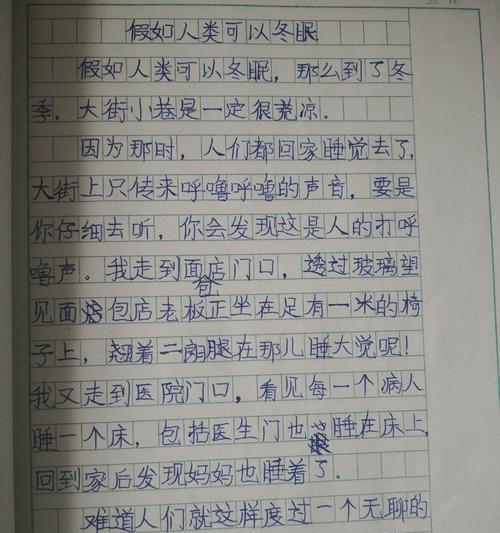 假如人类可以冬眠
假如人类可以冬眠,那么到了冬
季,大街小巷是一定很荒凉。
因为那时,人们都回家睡觉去了,
大街上只传来呼噜呼噜的声音,要是
你仔细去听,你会发现这是人的打呼
噜声。我走到面店门口,透过玻璃望
见面包店老板正坐在足有一米的椅
子上,翘着二郎腿在那儿睡大觉呢!
我又走到医院门口,看见每一个病人
睡一个床,包括医生门也睡在床上,
回到家后发现妈妈也睡着了.
难道人们就这样度过一个无聊的